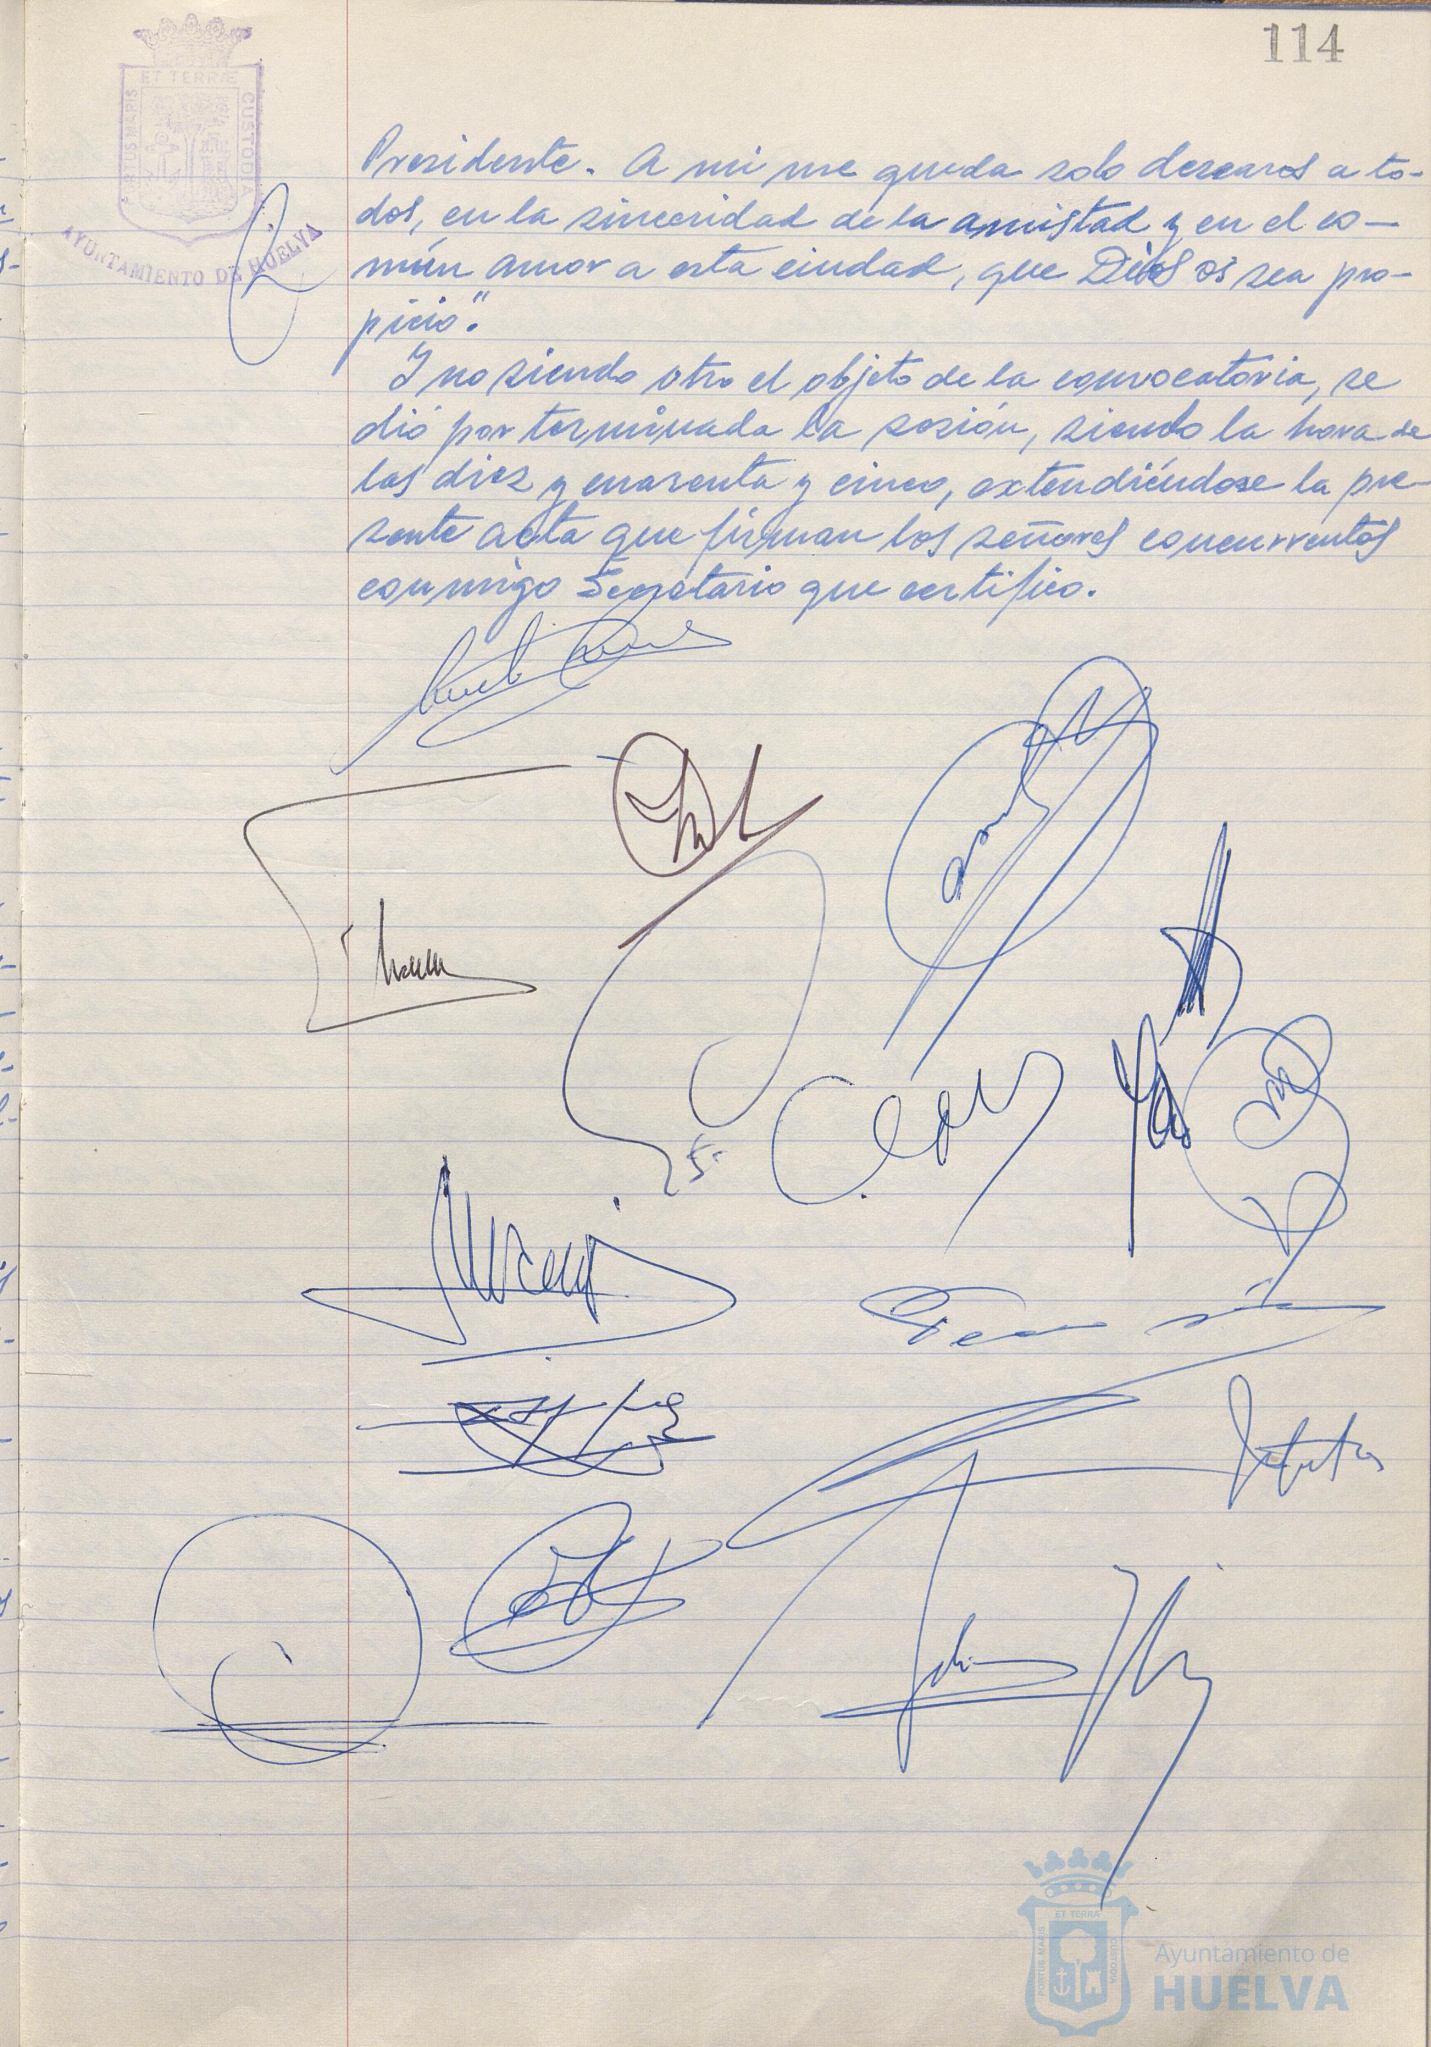 114
ET TERRÆ
PORTUS MARIS
CUSTODIA
AYUNTAMIENTO DE HUELVA
Presidente. A mi me queda solo desearos a to-
dos, en la sinceridad de la amistad y en el co-
mún amor a esta ciudad, que Dios os sea pro-
picio".
Y no siendo otro el objeto de la convocatoria, se
dió por terminada la sesión, siendo la hora de
las diez y cuarenta y cinco, extendiéndose la pre-
sente acta que firman los señores concurrentes
conmigo Secretario que certifico.
ET TERRA
PORTUS MARIS
CUSTODIA
Ayuntamiento de
HUELVA